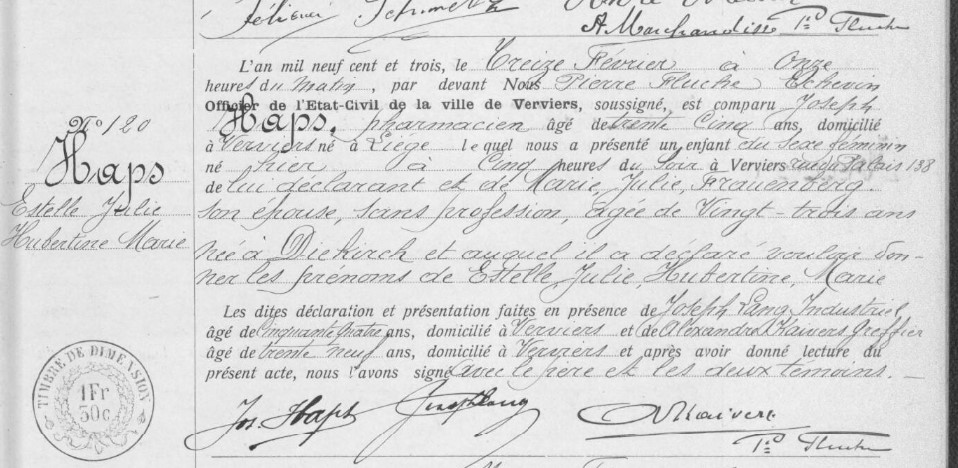 A Marchandise Pre Fluche
L'an mil neuf cent et trois, le Treize Février à Onze
heures du matin, par devant Nous Pierre Fluche Echevin
Officier de l'Etat-Civil de la ville de Verviers, soussigné, est comparu Joseph
Haps, pharmacien âgé de trente Cinq ans, domicilié
à Verviers né à Liége lequel nous a présenté un enfant du sexe féminin
né hier à Cinq heures du Soir à Verviers rue du Palais 138
de lui déclarant et de Marie, Julie, Frauenberg.
son épouse, sans profession, agée de Vingt-trois ans
née à Diekirch et auquel il a déclaré vouloir don-
ner les prénoms de Estelle, Julie, Hubertine, Marie
Les dites déclaration et présentation faites en présence de Joseph Lang Industriel
âgé de Cinquante quatre ans, domicilié à Verviers et de Alexandre Greffier
âgé de trente neuf ans, domicilié à Verviers et après avoir donné lecture du
présent acte, nous l'avons signé avec le père et les deux témoins. —
Jos. Haps Joseph Lang
Pre Fluche
No 120
Haps
Estelle Julie
Hubertine Marie
TIMBRE DE DIMENSION
1 Fr
30 c